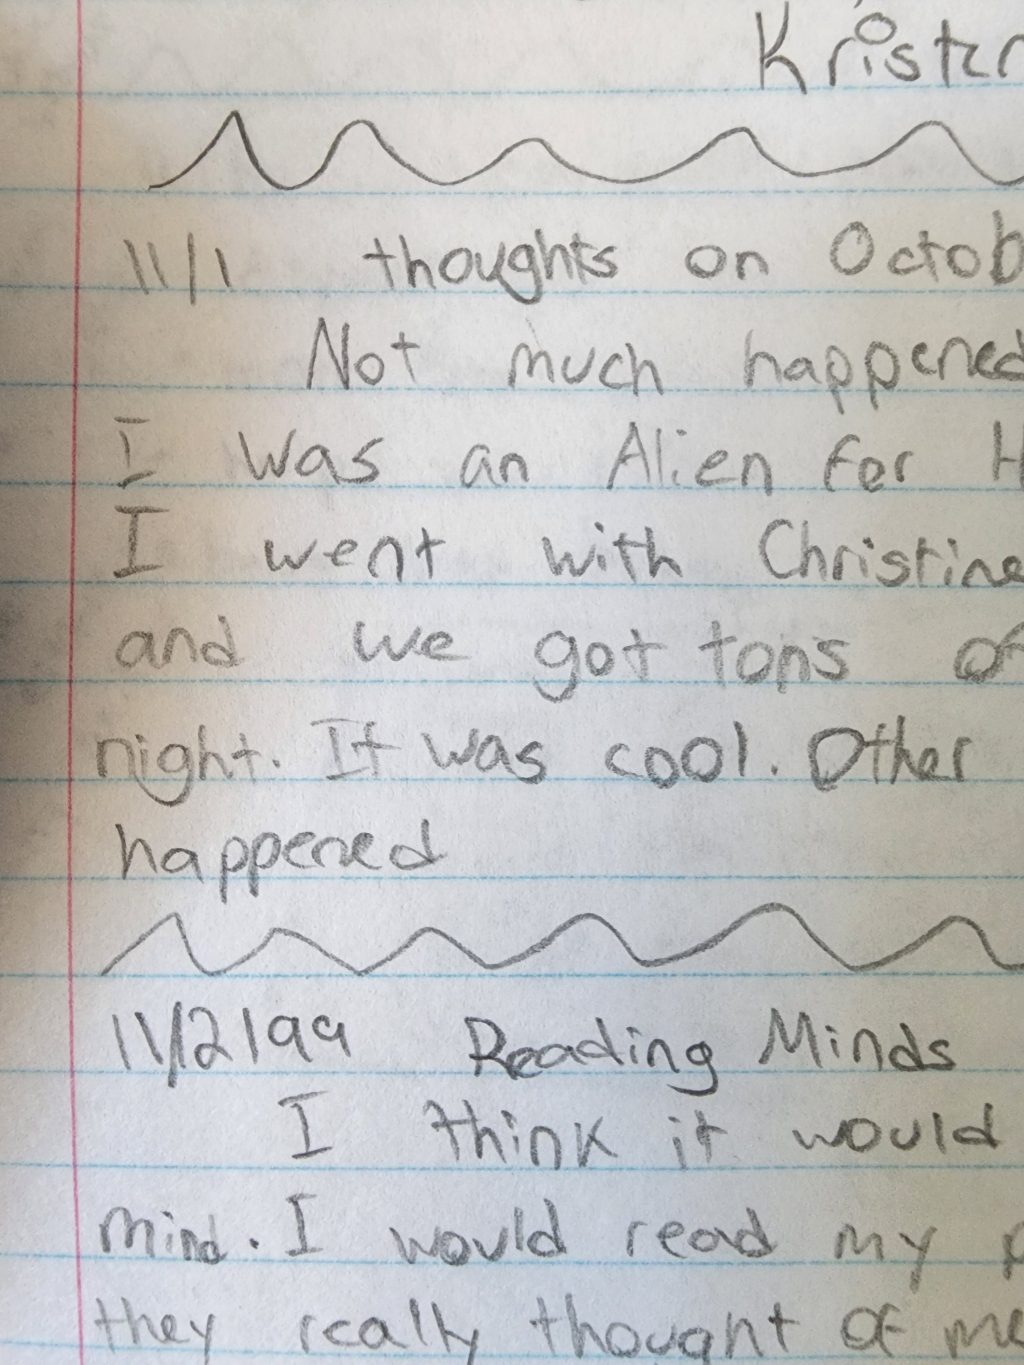 Krister
11/1 thoughts on Octob
Not much happened
I was an Alien for H
I went with Christine
and we got tons of
night. It was cool. Other
happened
11/2/99 Reading Minds
I think it would
mind. I would read my p
they really thought of me